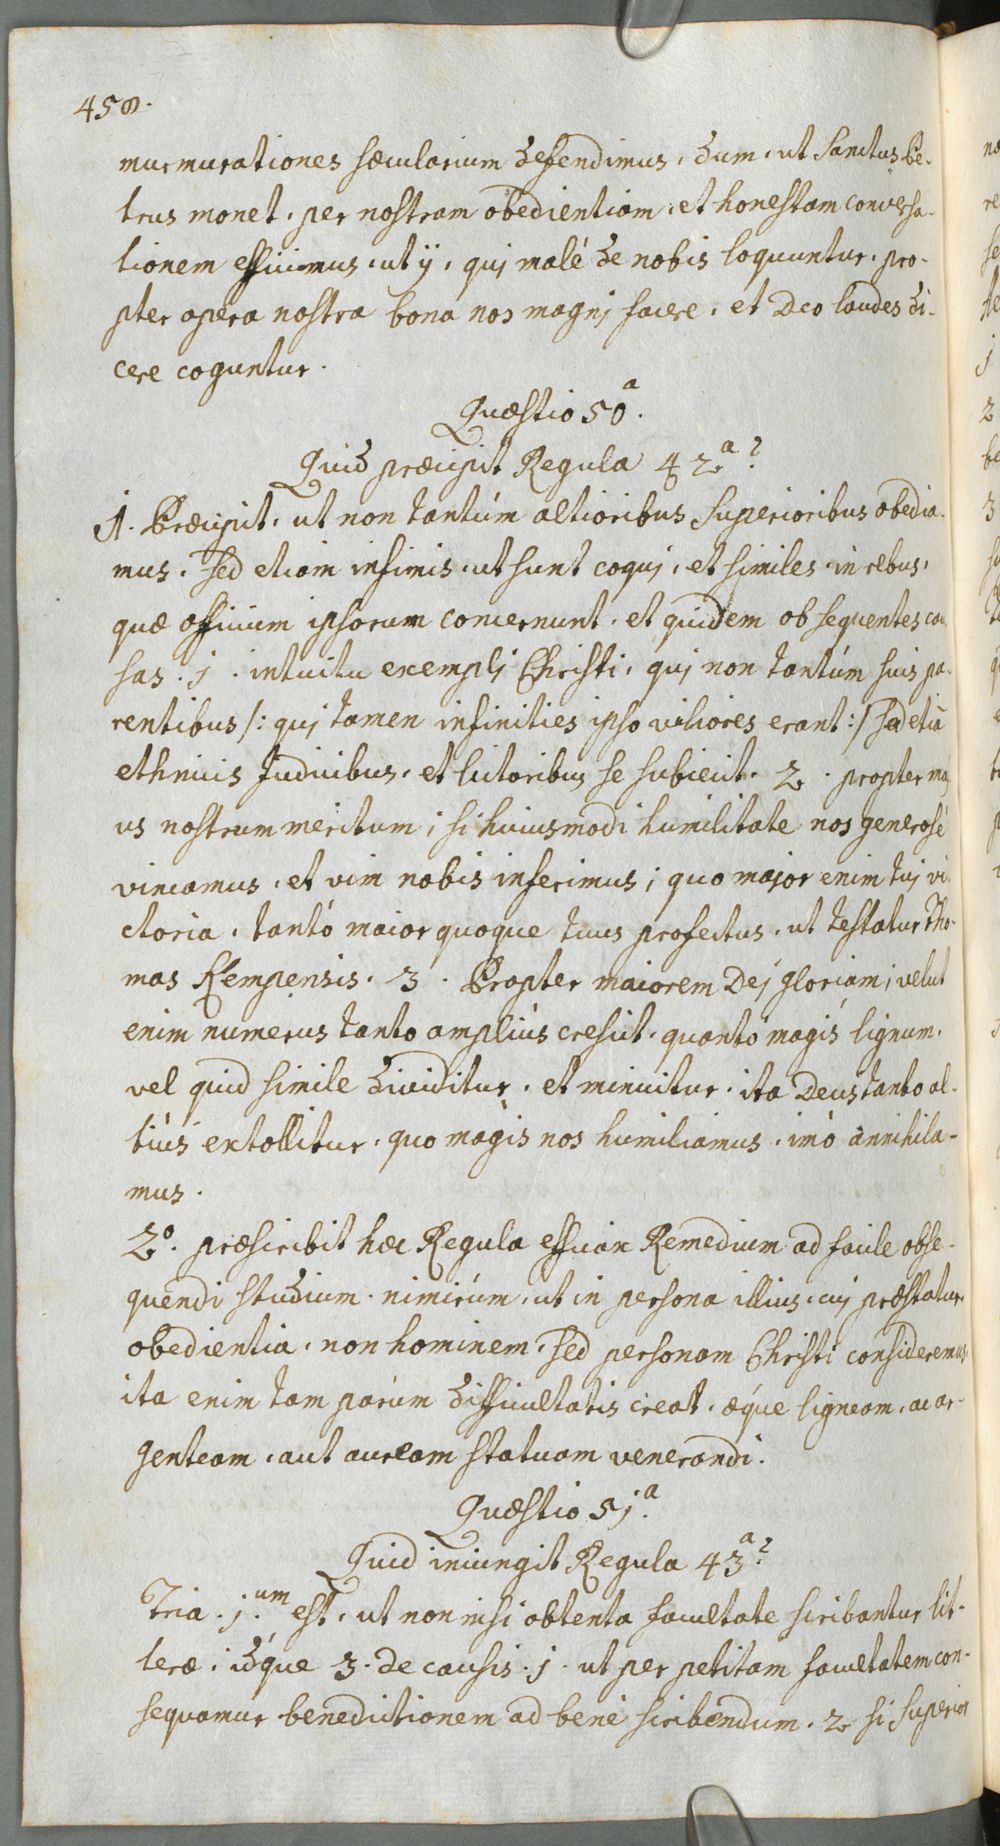 458.
murmurationes sæcularium defendimus, dum, ut Sanctus Pe-
trus monet, per nostram obedientiam, et honestam conversa-
tionem efficimus, ut ij, quj malé de nobis loquuntur, pro-
pter opera nostra bona nos magnj facere, et Deo laudes di-
cere coguntur.
Quæstio 50.ª
Quid præcipit Regula 42.ª?
1. Præcipit, ut non tantúm altioribus Superioribus obedia-
mus, sed etiam infimis, ut sunt coquj, et similes, in rebus,
quæ officium ipsorum concernunt, et quidem ob sequentes cau
sas. j. intuitu exemplj Christi, quj non tantúm suis pa-
rentibus /: quj tamen infinities ipso viliores erant :/ sed etiã
ethnicis Judicibus, et lictoribus se subiecit. 2. propter ma
us nostrum meritum; si huiusmodi humilitate nos generosé
vincamus, et vim nobis inferimus; quo major enim tuj vi-
ctoria, tantó maior quoque tuus profectus, ut testatur Tho-
mas Kempensis. 3. Propter maiorem Dej gloriam; velut
enim numerus tanto ampliús crescit, quantó magis lignum,
vel quid simile dividitur, et minuitur, ita Deus tanto al-
tiús extollitur, quo magis nos humiliamus, imò annihila-
mus.
2º. præscribit hæc Regula efficax Remedium ad facile obse-
quendi studium, nimirúm, ut in persona illius, cuj præstatur
obedientia, non hominem, sed personam Christi consideremus,
ita enim tam parúm difficultatis creat, æque ligneam, ac ar-
genteam, aut auream statuam venerandi.
Quæstio 5j.ª
Quid iniungit Regula 43.ª?
Tria. j.um est, ut non nisi obtenta facultate scribantur lit-
teræ, idque 3. de causis. j. ut per petitam facultatem con-
sequamur benedictionem ad bené scribendum. 2. si Superior